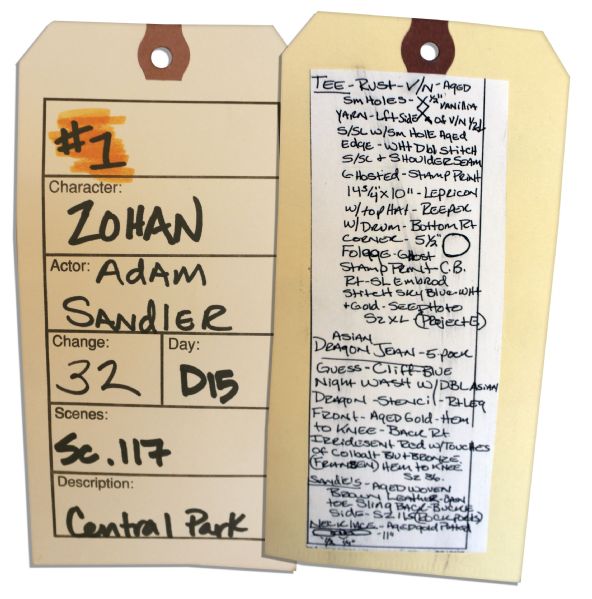 #1
Character:
ZOHAN
Actor: Adam
Sandler
Change: Day:
32 D15
Scenes:
Sc. 117
Description:
Central Park
TEE - RUST - V/N - AGED
Sm Holes - X 1/2" Vanilla
YARN - Lft Side of V/N 1/2
S/SL w/Sm Hole Aged
Edge - WHT Dbl Stitch
S/SL + Shoulder Seam
Ghosted - Stamp Print
14 3/4" x 10" - Lepricon
w/top Hat - Reeper
w/Drum - Bottom Rt
Corner - 5 1/2"
Foliage - Ghost
Stamp Print - C.B.
Rt - SL Embrod
Stitch Sky Blue - WHT
+ Gold - See Photo
Sz XL - (Project E)
ASIAN
Dragon Jean - 5 pock
Guess - Cliff Blue
Night Wash w/ Dbl Asian
Dragon - Stencil - Rt Leg
Front - Aged Gold - Hem
to Knee - Back Rt
Irridesent Red w/Touches
of Colbolt Blu + Bronze
Hem to Knee
Sz 36.
Sandels - Aged Woven
Brown Leather -
toe Sling Back - Buckle
Side - Sz 11 1/2 (Rockports)
Necklace - Aged gold
- 11"